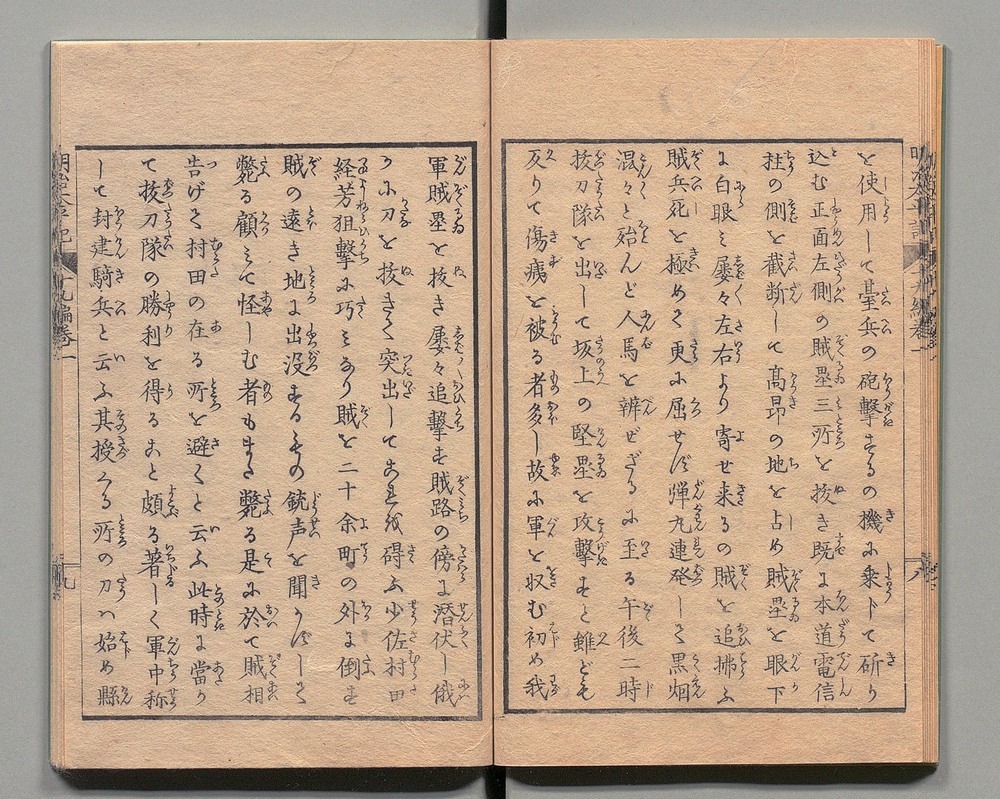 を使用して臺兵の砲撃するの機に乗トて斫り
込む正面左側の賊塁三所を抜き既に本道電信
柱の側を截断して髙昻の地を占め賊塁を眼下
に白眼ミ屡々左右より寄せ来るの賊を追拂ふ
賊兵死を極めて更に屈せず弾丸連発して黒烟
混々と殆んど人馬を辨ぜざるに至る午後二時
抜刀隊を出して坂上の堅塁を攻撃すと雖ども
反りて傷痍を被る者多し故に軍を収む初め我
軍賊塁を抜き屡々追撃す賊路の傍に潜伏し俄
かに刀を抜きて突出してこれを碍ふ少佐村田
経芳狙撃に巧ミなり賊を二十余町の外に倒す
賊の遠き地に出没するもの銃声を聞かずして
斃る顧ミて怪しむ者もまた斃る是に於て賊相
告げて村田の在る所を避くと云ふ此時に當り
て抜刀隊の勝利を得ること頗る著しく軍中称
して封建騎兵と云ふ其授くる所の刀ハ始め縣
明治太平記
十九編巻一
九
八